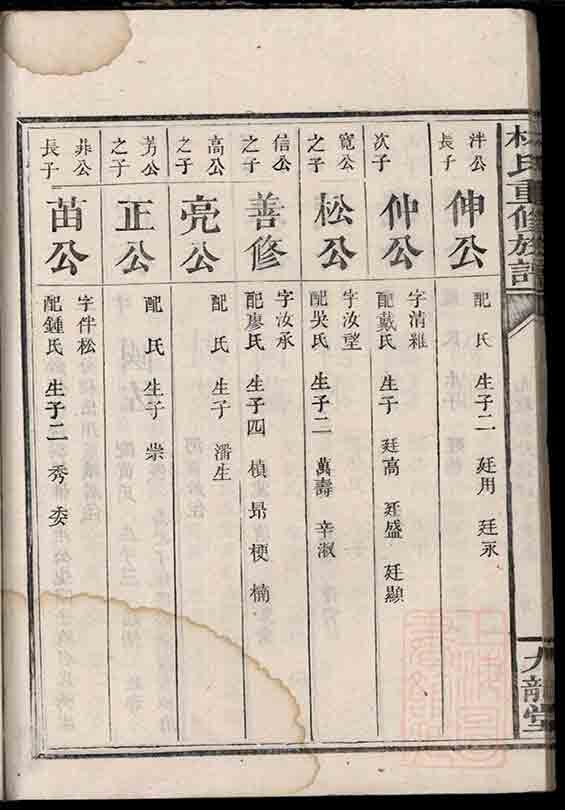 林氏重修族譜
九龍堂
泮公
長子
伸公
配 氏 生子二 廷用 廷永
次子
仲公
字清雅
配戴氏 生子 廷高 廷盛 廷顯
寬公
之子
松公
字汝望
配吳氏 生子二 萬壽 辛淑
信公
之子
善修
字汝承
配廖氏 生子四 槙 昻 梗 楠
高公
之子
亮公
配 氏 生子 潘生
芳公
之子
正公
配 氏 生子 崇
非公
長子
苗公
字伴松
配鍾氏 生子二 秀 委